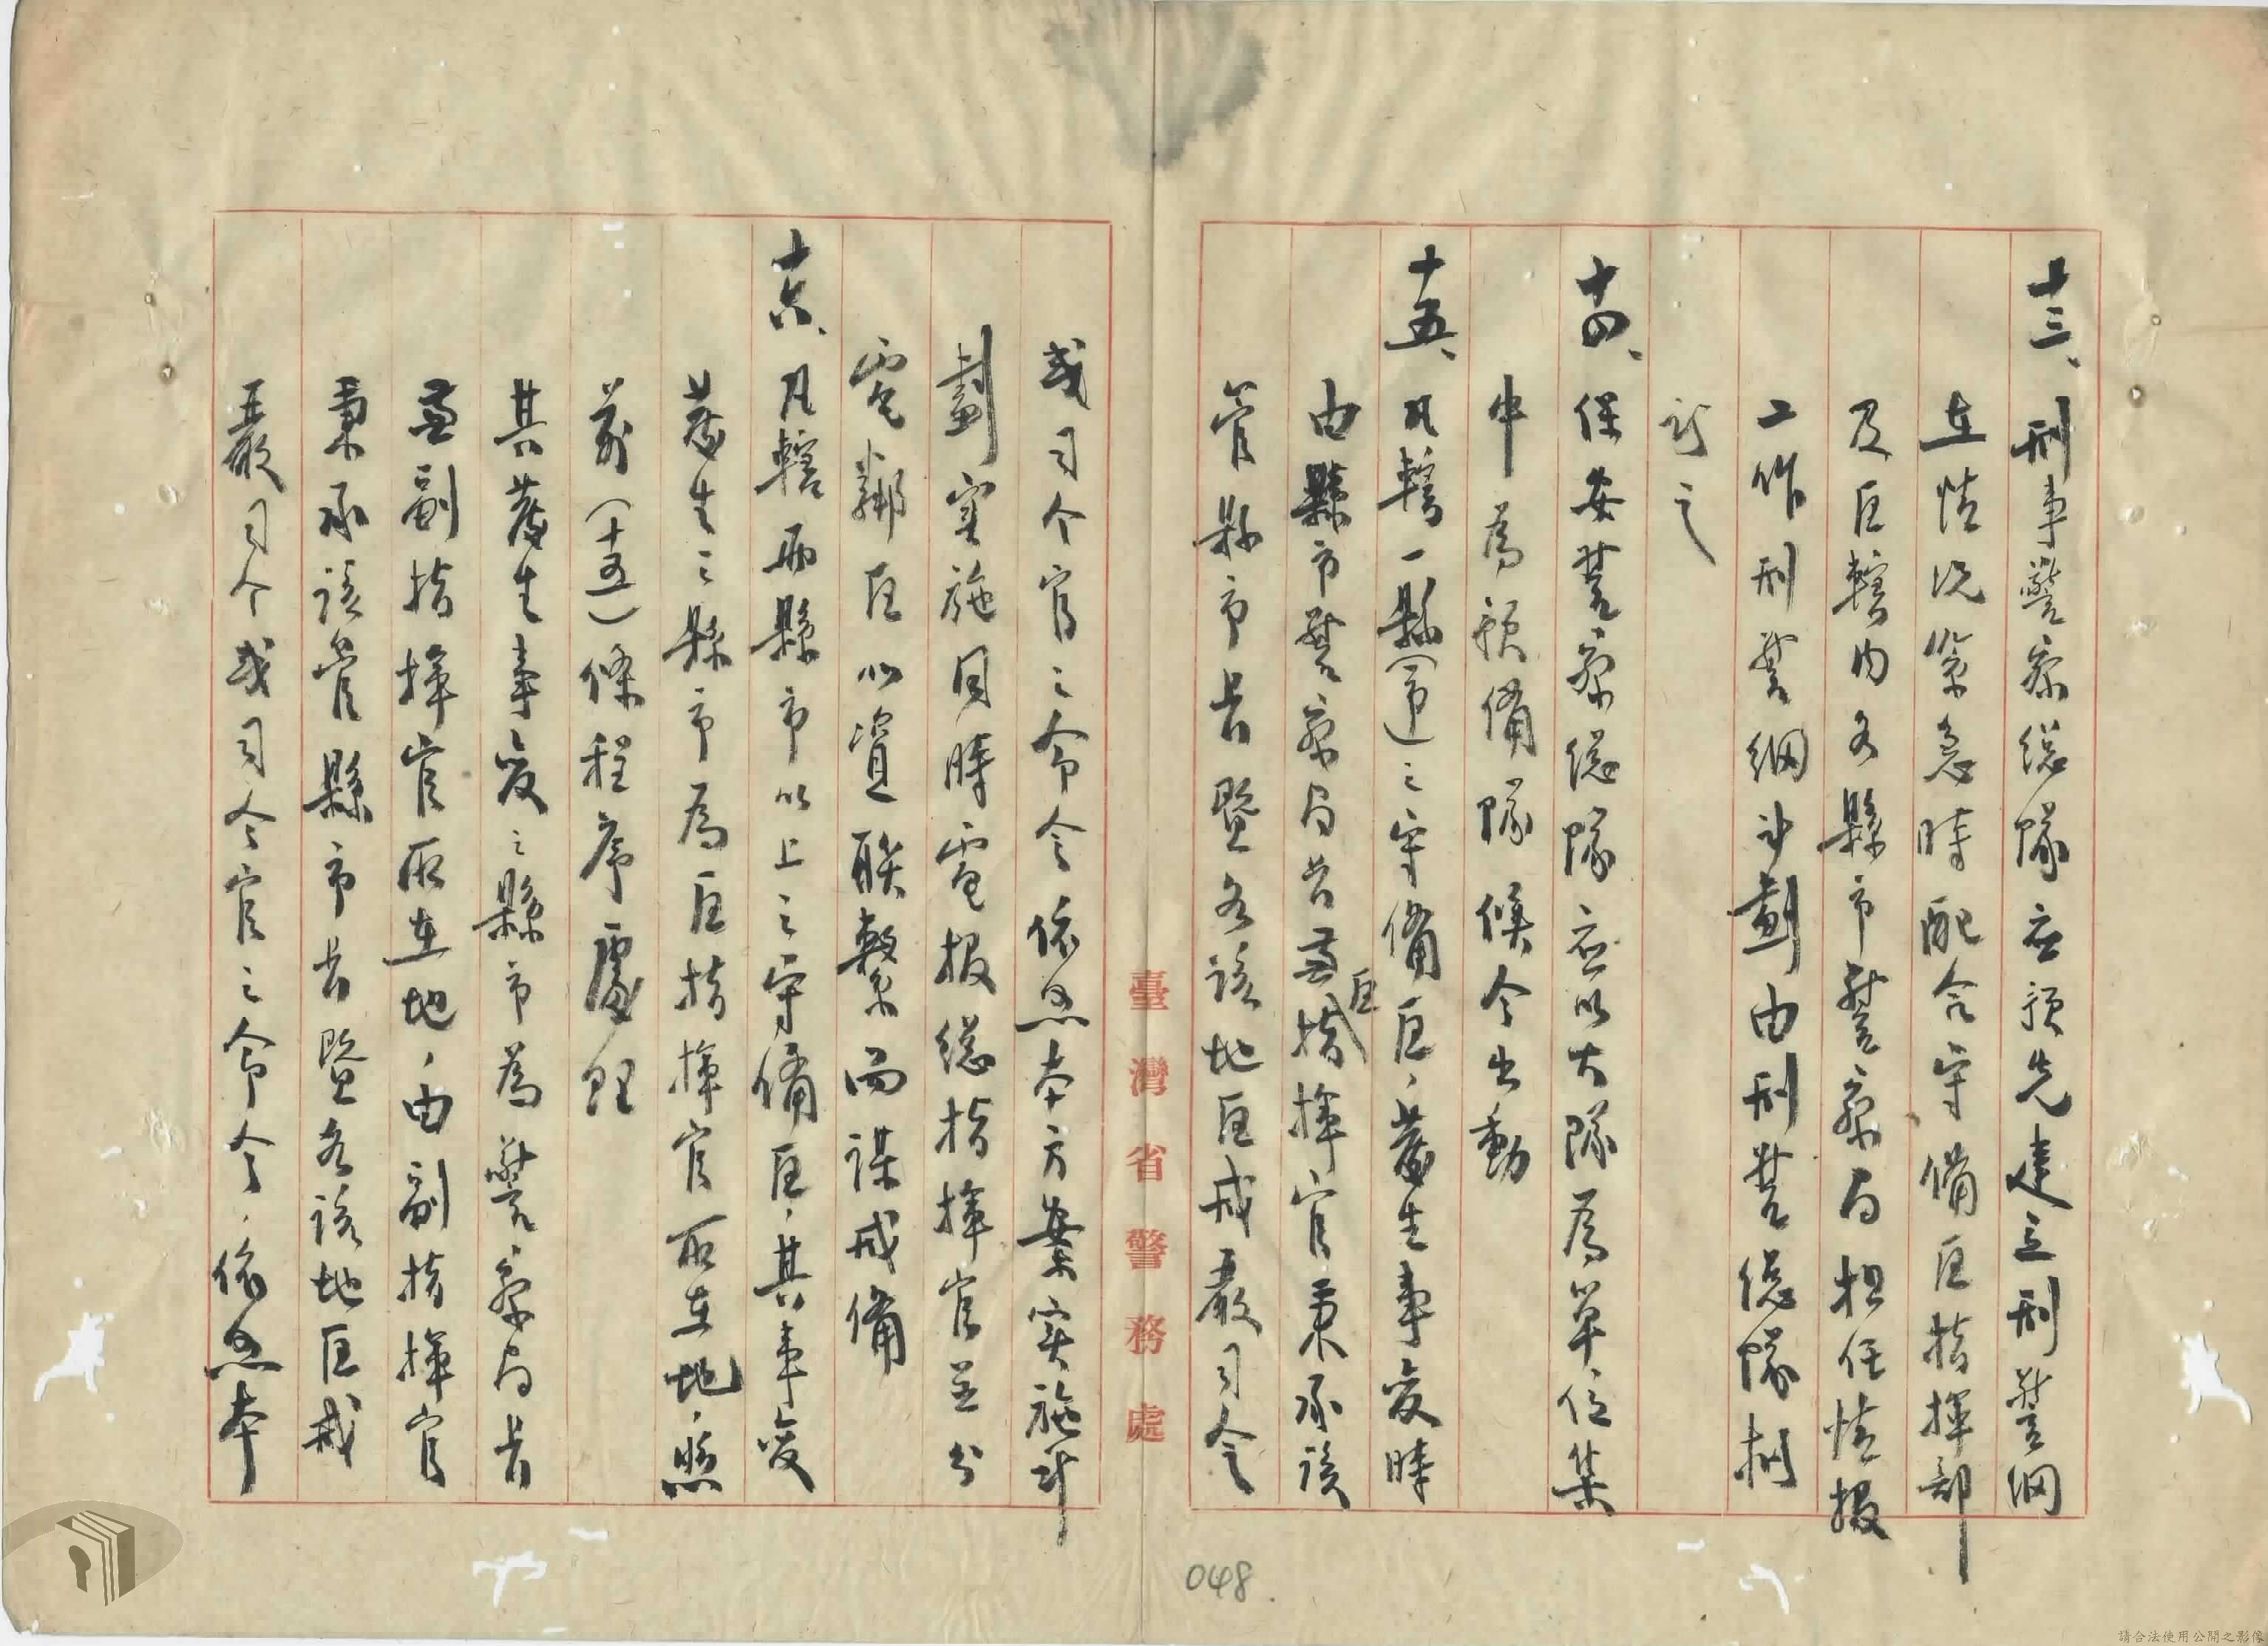 十三、刑事警察總隊应預先建立刑警網
在情況緊急時配合守備区指揮部
及区轄内各縣市警察局担任情报
工作刑警網計劃由刑警總隊拟
訂之
十四、保安警察總隊应以大隊為單位集
中為預備隊候令出動
十五、凡轄一縣(市)之守備区，發生事变時
由縣市警察局長兼区指揮官秉承該
管縣市長暨各該地区戒嚴司令
或司令官之命令依照本方案実施計
劃实施同時電报總指揮官並分
電鄰区以資联繫而謀戒備
十六、凡轄兩縣市以上之守備区，其事变
發生之縣市為区指揮官所在地，照
前(十五)條程序處理
其發生事变之縣市為警察局長
兼副指揮官所在地，由副指揮官
秉承該管縣市長暨各該地区戒
嚴司令或司令官之命令，依照本
臺灣省警務處
048
請合法使用公開之影像